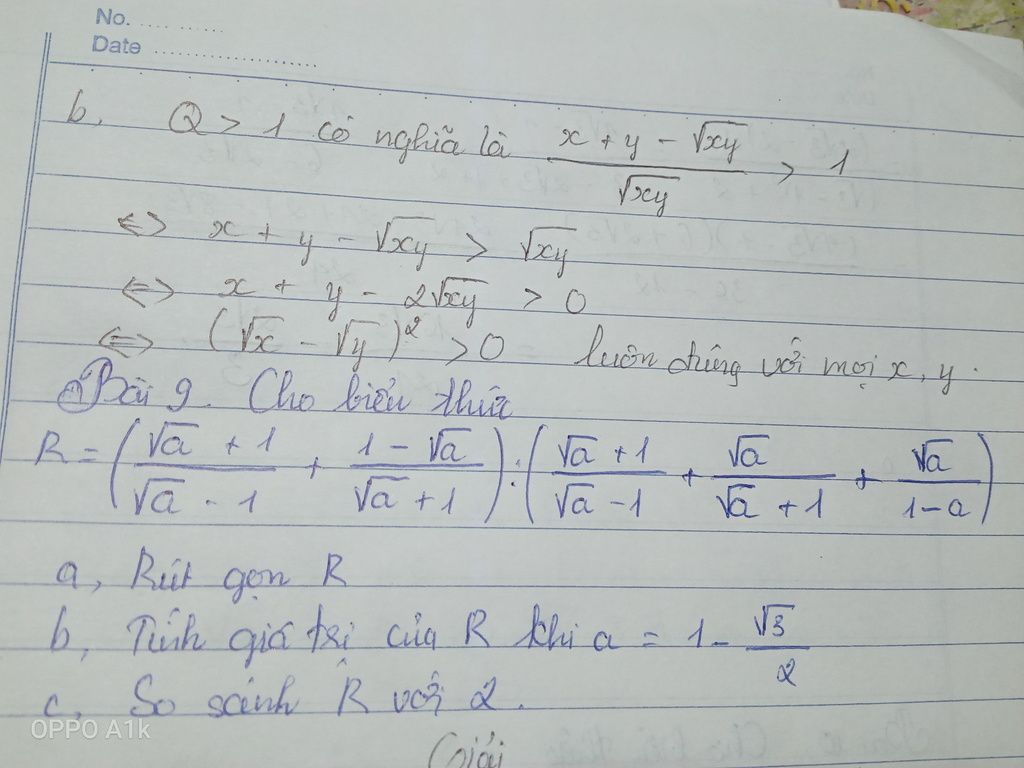 No. ..........
Date ....................
b, Q > 1 có nghĩa là (x + y - √xy)/√xy > 1
<=> x + y - √xy > √xy
<=> x + y - 2√xy > 0
<=> (√x - √y)² > 0 luôn đúng với mọi x, y.
Bài 9. Cho biểu thức
R = ((√a + 1)/(√a - 1) + (1 - √a)/(√a + 1)) : ((√a + 1)/(√a - 1) + √a/(√a + 1) + √a/(1 - a))
a, Rút gọn R
b, Tính giá trị của R khi a = 1 - √3/2
c, So sánh R với 2.
Giải
OPPO A1k